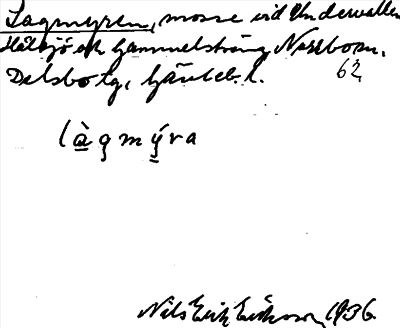 Lagmyren, mosse vid Undervallen
och Gammelsträng, Norrbom.
Delsbo sg, Gävleb. l.
62
l à g m ý r a
Nils Erik Eriksson 1936.